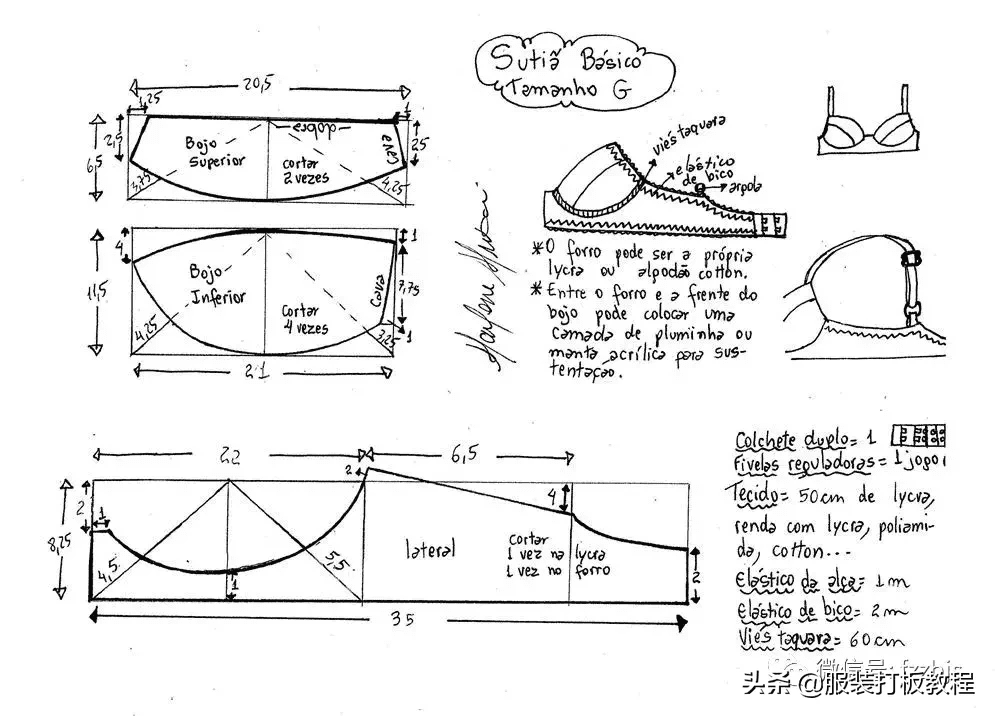 Sutiã Básico
Tamanho G
20,5
1,25
1
2,5
6,5
Bojo
Superior
dobra
cortar
2 vezes
cava
2,5
3,75
4,25
4
11,5
Bojo
Inferior
cortar
4 vezes
cava
1
7,75
1
4,25
3,25
21
viés taquara
elástico
de bico
argola
*O forro pode ser a própria
lycra ou algodão cotton.
*Entre o forro e a frente do
bojo pode colocar uma
camada de pluminha ou
manta acrílica para sus-
tentação.
22
6,5
2
2
1
8,25
4,5
1
5,5
lateral
4
cortar
1 vez na lycra
1 vez no forro
2
35
Colchete duplo = 1
Fivelas reguladoras = 1 jogo
Tecido = 50cm de lycra,
renda com lycra, poliami-
da, cotton...
Elástico da alça = 1m
Elástico de bico = 2m
Viés taquara = 60cm
微信号: fzzbjs
头条 @服装打板教程